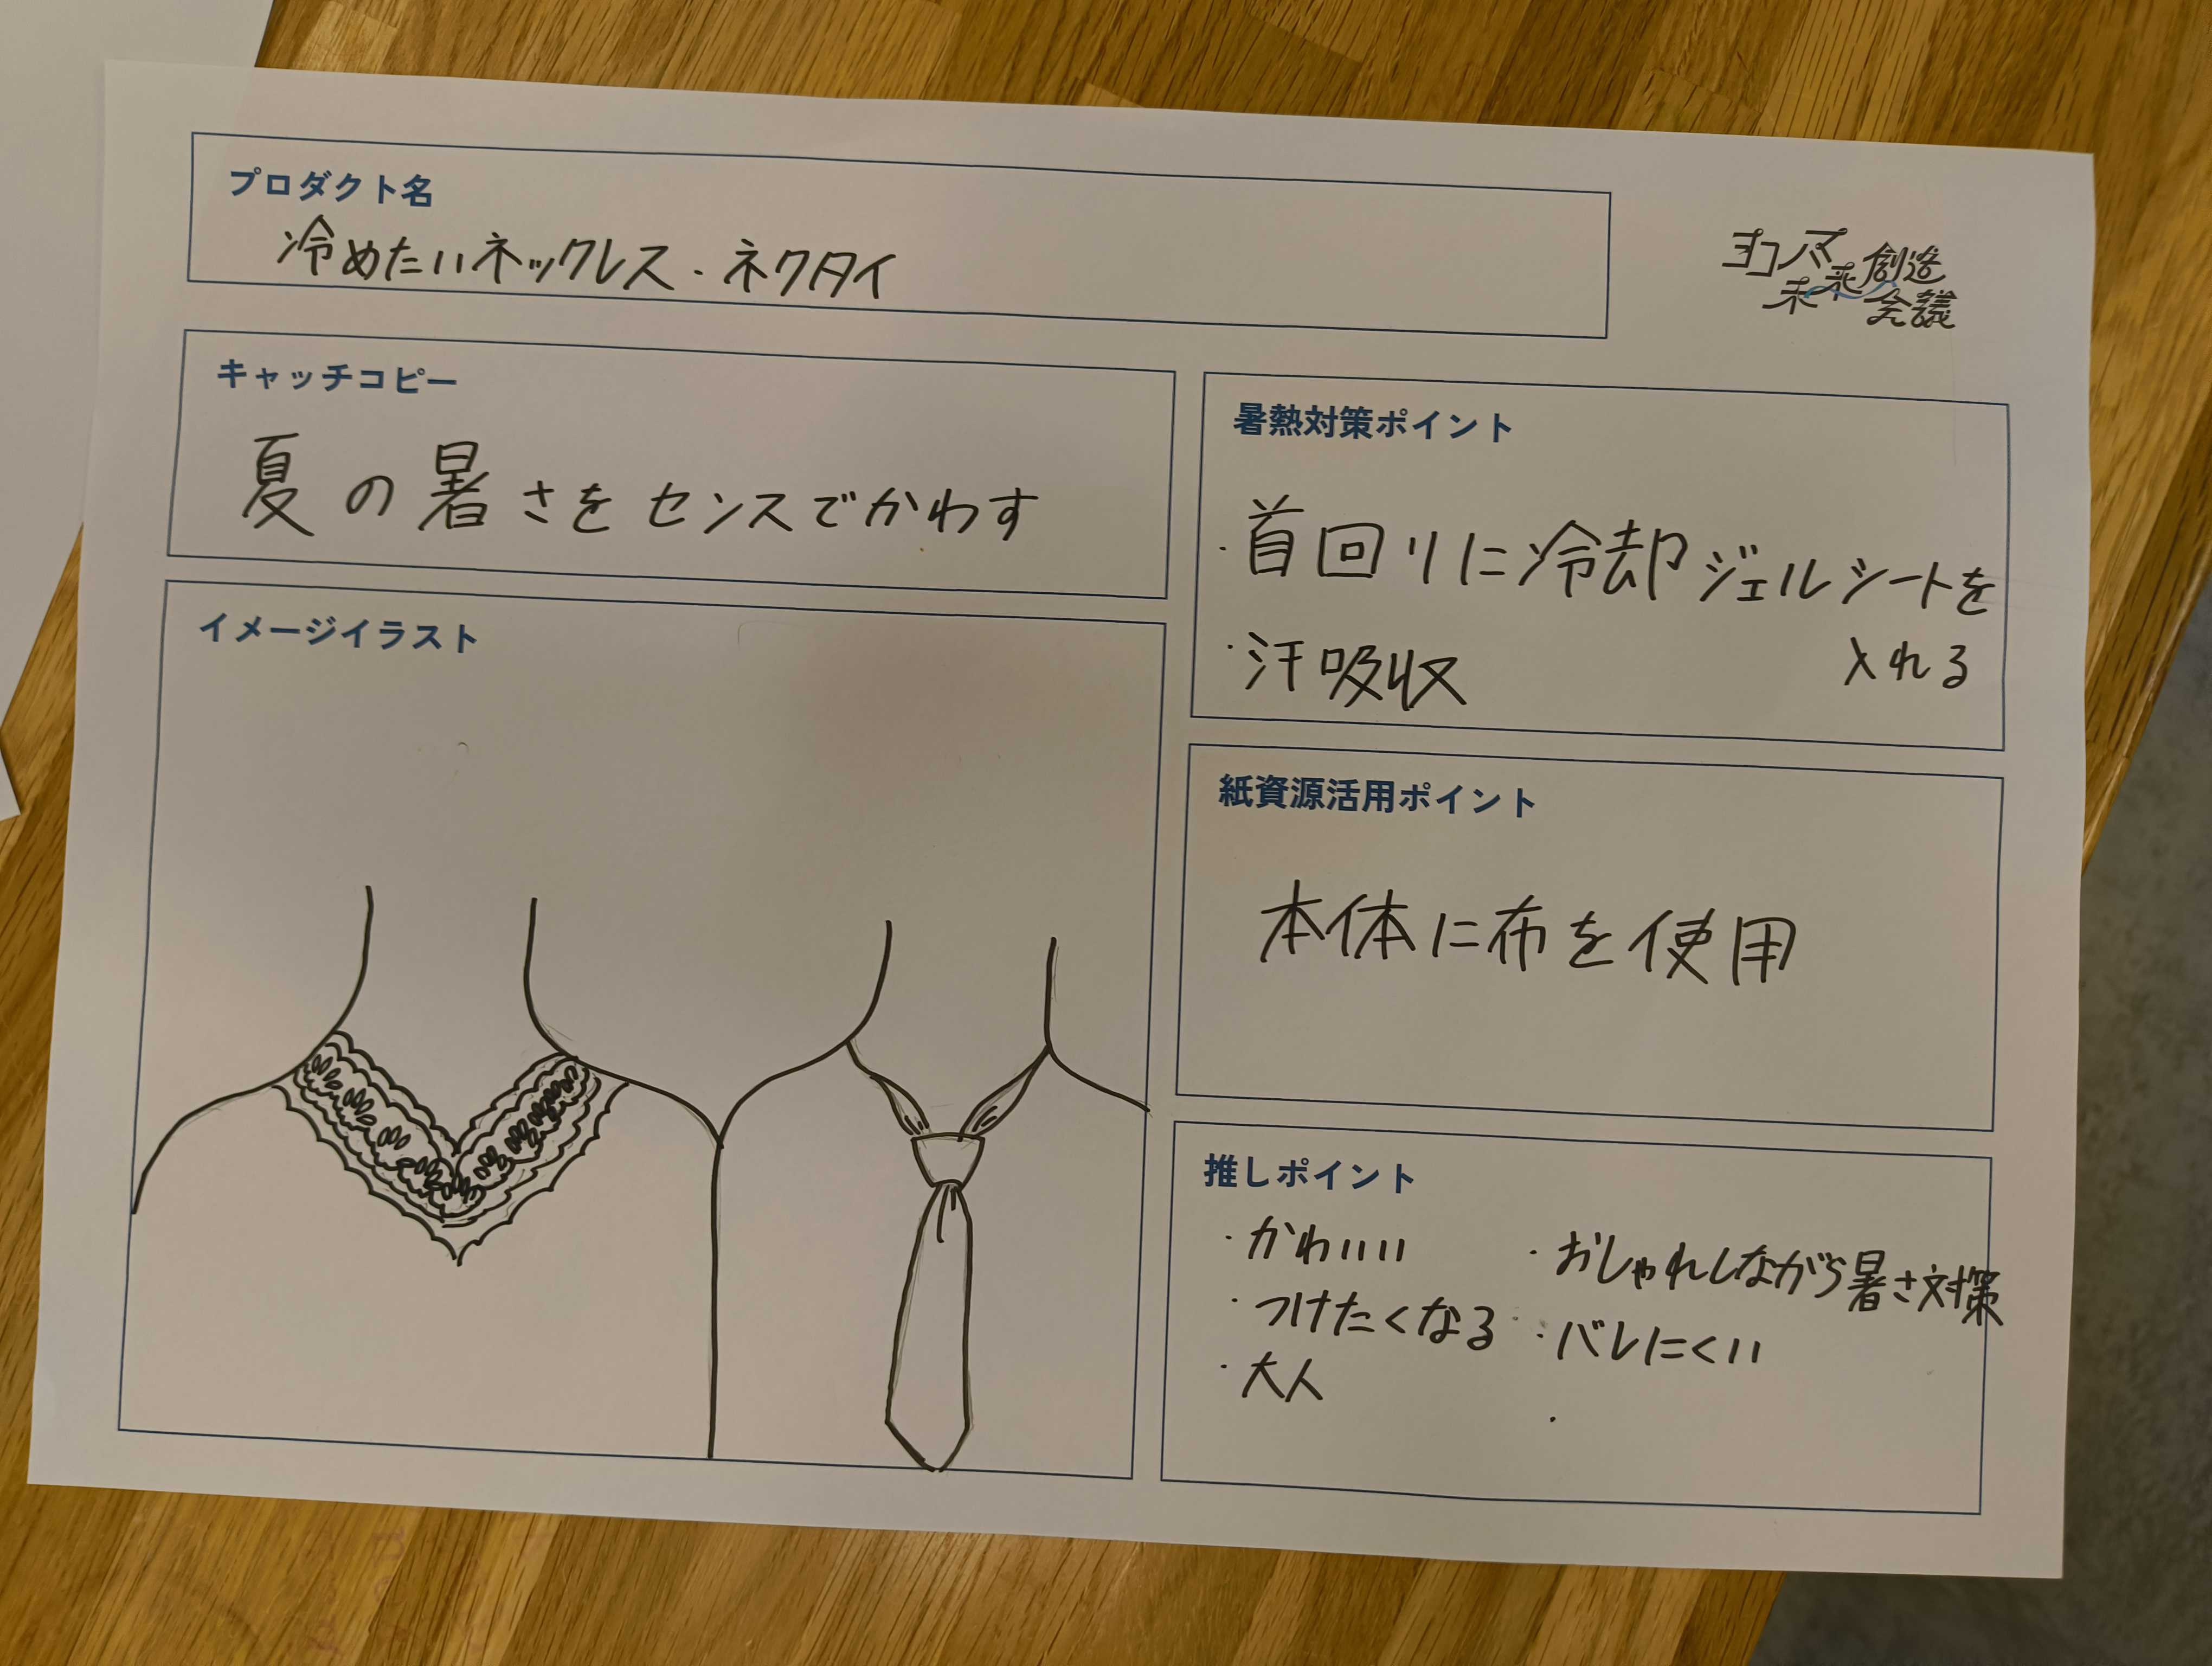 プロダクト名
冷めたいネックレス・ネクタイ
ヨコハマ
未来創造
会議
キャッチコピー
夏の暑さをセンスでかわす
暑熱対策ポイント
・首回りに冷却ジェルシートを
入れる
・汗吸収
イメージイラスト
紙資源活用ポイント
本体に布を使用
推しポイント
・かわいい
・つけたくなる
・大人
・おしゃれしながら暑さ対策
・バレにくい
・